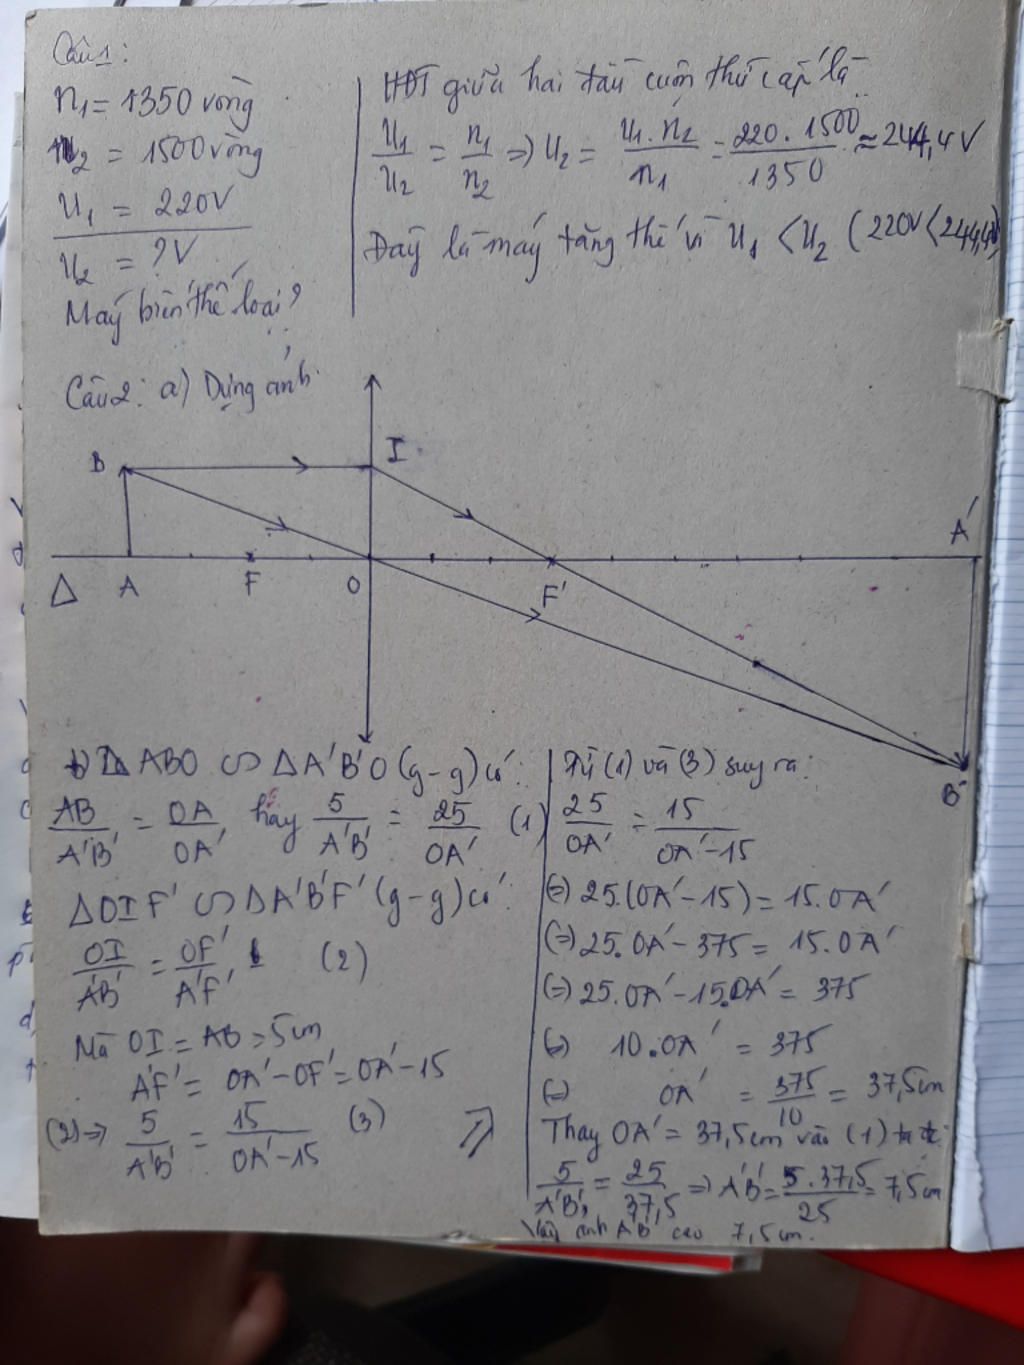 Câu 1:
n₁ = 1350 vòng
n₂ = 1500 vòng
U₁ = 220V
U₂ = ?V
Máy biến thế loại?
HĐT giữa hai đầu cuộn thứ cấp là
U₁/U₂ = n₁/n₂ => U₂ = U₁.n₂/n₁ = 220.1500/1350 ≈ 244,4V
Đây là máy tăng thế vì U₁ < U₂ (220V < 244,4V)
Câu 2: a) Dựng ảnh
B I
A'
Δ A F O F'
B'
b) Δ ABO ∽ ΔA'B'O (g-g) có:
AB/A'B' = OA/OA' hay 5/A'B' = 25/OA' (1)
ΔOIF' ∽ ΔA'B'F' (g-g) có:
OI/A'B' = OF'/A'F' (2)
Mà OI = AB = 5cm
A'F' = OA' - OF' = OA' - 15
(2) => 5/A'B' = 15/OA'-15 (3)
Từ (1) và (3) suy ra:
25/OA' = 15/OA'-15
(=) 25.(OA' - 15) = 15.OA'
(=) 25.OA' - 375 = 15.OA'
(=) 25.OA' - 15.OA' = 375
(=) 10.OA' = 375
(=) OA' = 375/10 = 37,5cm
Thay OA' = 37,5cm vào (1) ta đc:
5/A'B' = 25/37,5 => A'B' = 5.37,5/25 = 7,5cm
Vậy ảnh A'B' cao 7,5cm.